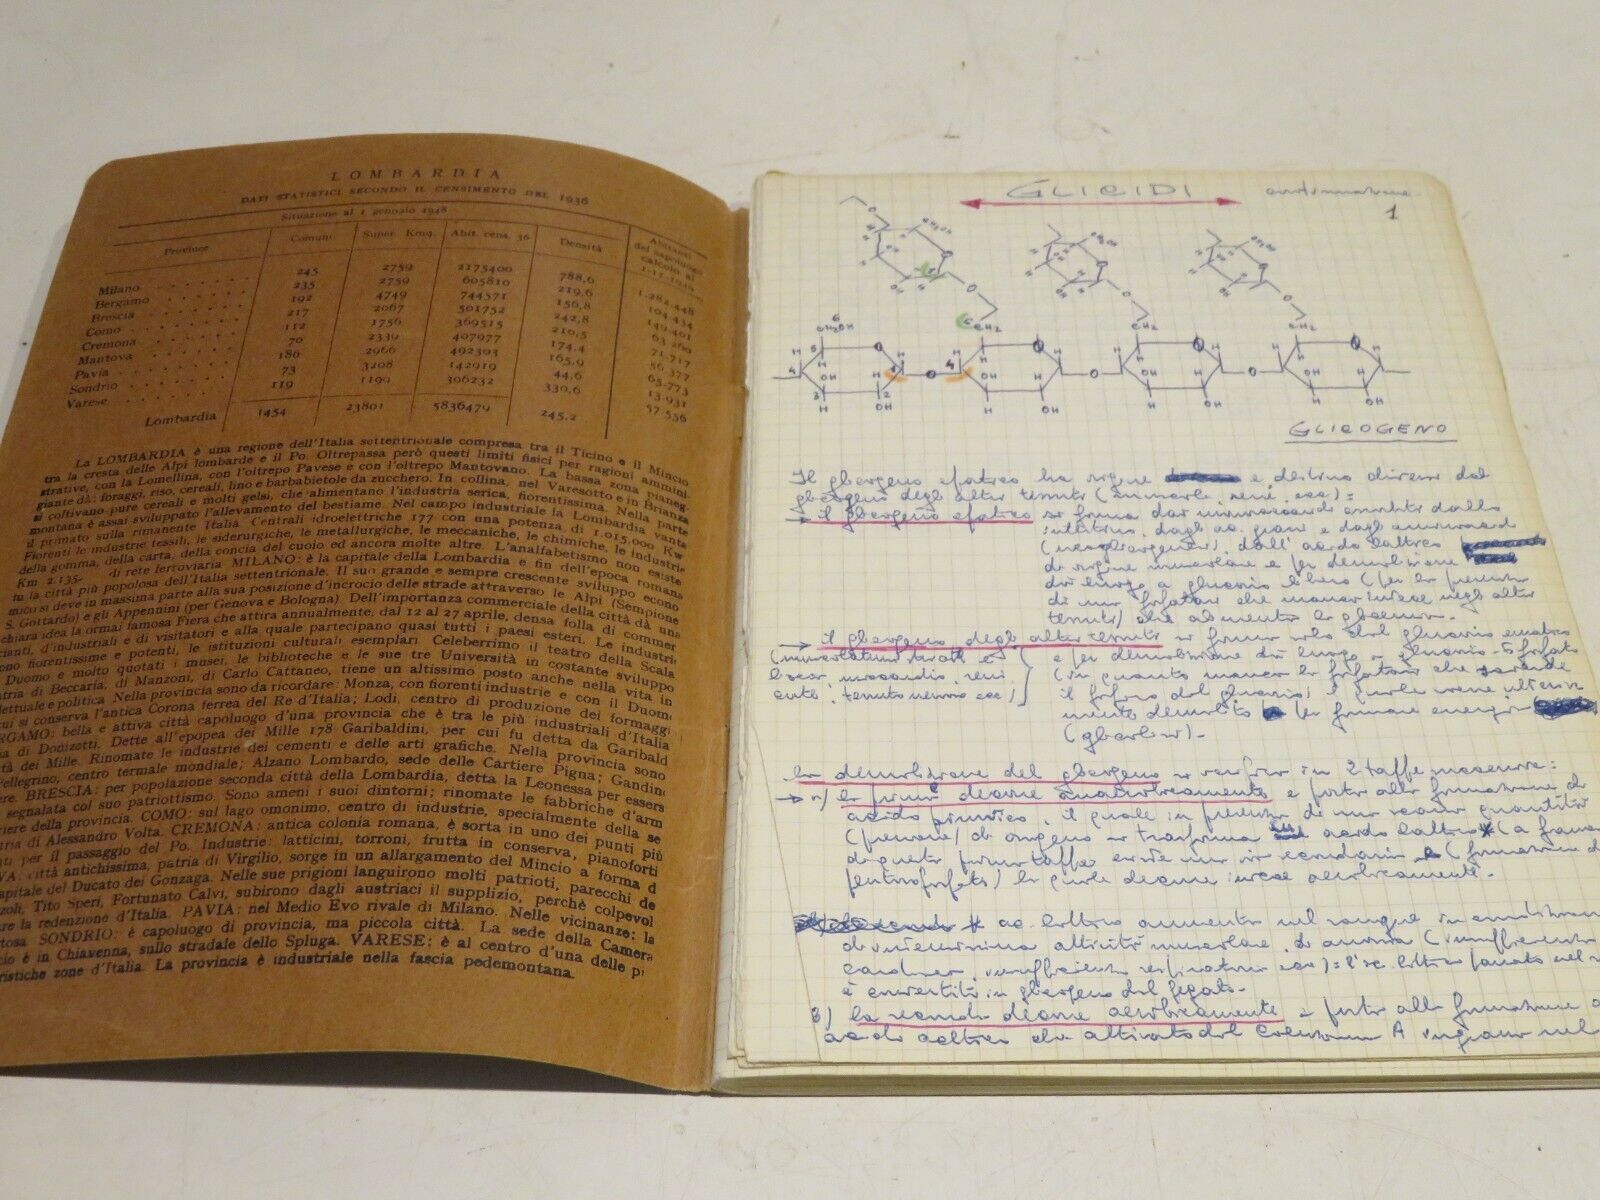 LOMBARDIA
DATI STATISTICI SECONDO IL CENSIMENTO DEL 1936
Situazione al 1 gennaio 1948
Province Comuni Super. Kmq. Abit. cens. 36 Densità Abitanti del capoluogo calcolo al 1-11-1949
Milano 245 2759 2175400 788,6 1.282.448
Bergamo 235 2759 605810 219,6 104.434
Brescia 192 4749 744571 156,8 149.401
Como 217 2067 501752 242,8 63.260
Cremona 112 1756 369515 210,5 71.717
Mantova 70 2339 407977 174,4 56.377
Pavia 186 2966 492393 165,9 65.773
Sondrio 73 3208 142919 44,6 13.931
Varese 119 1199 396232 330,6 57.556
Lombardia 1454 23801 5836479 245,2
La LOMBARDIA è una regione dell'Italia settentrionale compresa tra il Ticino e il Mincio
tra la cresta delle Alpi lombarde e il Po. Oltrepassa però questi limiti fisici per ragioni ammini
strative, con la Lomellina, con l'oltrepo Pavese e con l'oltrepo Mantovano. La bassa zona pianeg-
giante dà: foraggi, riso, cereali, lino e barbabietole da zucchero. In collina, nel Varesotto e in Brianza
si coltivano pure cereali e molti gelsi, che alimentano l'industria serica, fiorentissima. Nella parte
montana è assai sviluppato l'allevamento del bestiame. Nel campo industriale la Lombardia vanta
il primato sulla rimanente Italia. Centrali idroelettriche 177 con una potenza di 1.015.000 Kw
Fiorenti le industrie tessili, le siderurgiche, le metallurgiche, le meccaniche, le chimiche, le industrie
della gomma, della carta, della concia del cuoio ed ancora molte altre. L'analfabetismo non esiste
Km 2.135- di rete ferroviaria MILANO: è la capitale della Lombardia e fin dell'epoca romana
fu la città più popolosa dell'Italia settentrionale. Il suo grande e sempre crescente sviluppo econo
mico si deve in massima parte alla sua posizione d'incrocio delle strade attraverso le Alpi (Sempione
S. Gottardo) e gli Appennini (per Genova e Bologna). Dell'importanza commerciale della città dà una
chiara idea la ormai famosa Fiera che attira annualmente, dal 12 al 27 aprile, densa folla di commer
cianti, d'industriali e di visitatori e alla quale partecipano quasi tutti i paesi esteri. Le industrie
ono fiorentissime e potenti, le istituzioni culturali esemplari. Celeberrimo il teatro della Scala
Duomo e molto quotati i musei, le biblioteche e le sue tre Università in costante sviluppo
atria di Beccaria, di Manzoni, di Carlo Cattaneo, tiene un altissimo posto anche nella vita in
tellettuale e politica. Nella provincia sono da ricordare: Monza, con fiorenti industrie e con il Duomo
cui si conserva l'antica Corona ferrea del Re d'Italia; Lodi, centro di produzione dei formaggi
RGAMO: bella e attiva città capoluogo d'una provincia che è tra le più industriali d'Italia
a di Donizotti. Dette all'epopea dei Mille 178 Garibaldini, per cui fu detta da Garibald
tà dei Mille. Rinomate le industrie dei cementi e delle arti grafiche. Nella provincia sono
Pellegrino, centro termale mondiale; Alzano Lombardo, sede delle Cartiere Pigna; Gandino
ere. BRESCIA: per popolazione seconda città della Lombardia, detta la Leonessa per essers
segnalata col suo patriottismo. Sono ameni i suoi dintorni; rinomate le fabbriche d'arm
riere della provincia. COMO: sul lago omonimo, centro di industrie, specialmente della se
ria di Alessandro Volta. CREMONA: antica colonia romana, è sorta in uno dei punti più
ti per il passaggio del Po. Industrie: latticini, torroni, frutta in conserva, pianoforti
VA: città antichissima, patria di Virgilio, sorge in un allargamento del Mincio a forma d
apitale del Ducato dei Gonzaga. Nelle sue prigioni languirono molti patrioti, parecchi de
zoli, Tito Speri, Fortunato Calvi, subirono dagli austriaci il supplizio, perchè colpevol
are la redenzione d'Italia. PAVIA: nel Medio Evo rivale di Milano. Nelle vicinanze: la
tosa SONDRIO: è capoluogo di provincia, ma piccola città. La sede della Camera
cio è in Chiavenna, sullo stradale dello Spluga. VARESE: è al centro d'una delle pi
ristiche zone d'Italia. La provincia è industriale nella fascia pedemontana.
GLICIDI
1
GLICOGENO
Il glicogeno epatico ha origine e destino diversi dal
glicogeno degli altri tessuti (muscolo, reni, ecc):
il glicogeno epatico si forma dai monosaccaridi assorbiti dallo
intestino, dagli ac. grassi e dagli aminoacidi
(neoglicogenesi), dall'acido lattico
di origine muscolare e per demolizione
dà luogo a glucosio libero (per la presenza
di una fosfatasi che manca invece negli altri
tessuti) che aumenta la glicemia.
il glicogeno degli altri tessuti si forma solo dal glucosio ematico
e per demolizione dà luogo a glucosio-6 fosfato
(in quanto manca la fosfatasi che scinde
il fosforo dal glucosio) il quale viene ulterior
mente demolito per formare energia
(glicolisi).
la demolizione del glicogeno si verifica in 2 tappe successive:
a) la prima decorre anaerobicamente e porta alla formazione di
acido piruvico, il quale in presenza di una scarsa quantità
(pressione) di ossigeno si trasforma acido lattico
di questa prima tappa esiste una via secondaria (formazione d
pentosofosfati) la quale decorre invece aerobicamente.
ac. lattico aumenta nel sangue in condizioni
di intensissima attività muscolare, di anossia (insufficienza
cardiaca, insufficienza respiratoria ecc)
è convertito in glicogeno dal fegato.
B) la seconda decorre aerobicamente e porta alla formazione
acido acetico che attivato dal Coenzima A